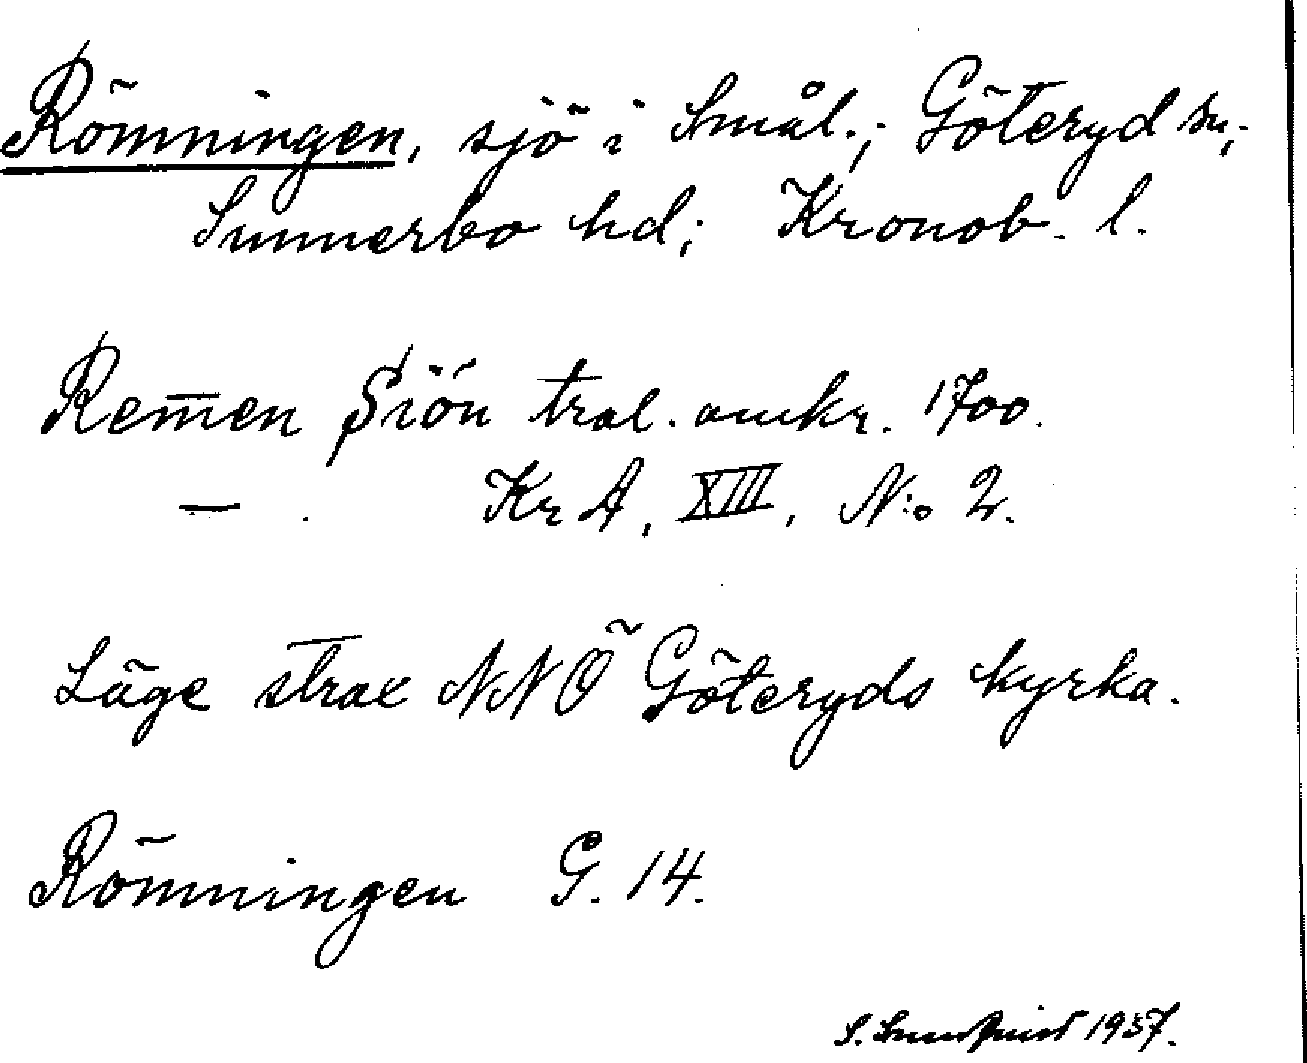 Römningen, sjö i Smål.; Göteryd sn;
Sunnerbo hd; Kronob. l.
Rem̄en Siön tral. omkr. 1700.
— . Kr A, XIII, N:o 2.
Läge strax NNÖ Göteryds kyrka.
Römningen G. 14.
S. 1937.